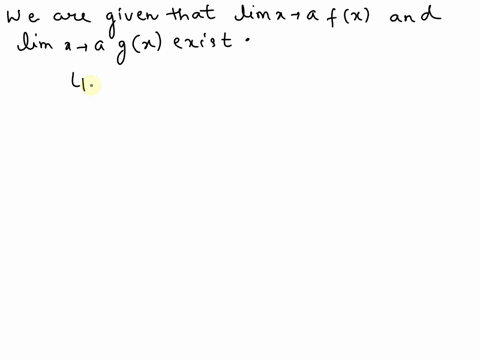 We are given that lim x→a f(x) and
lim x→a g(x) exist.